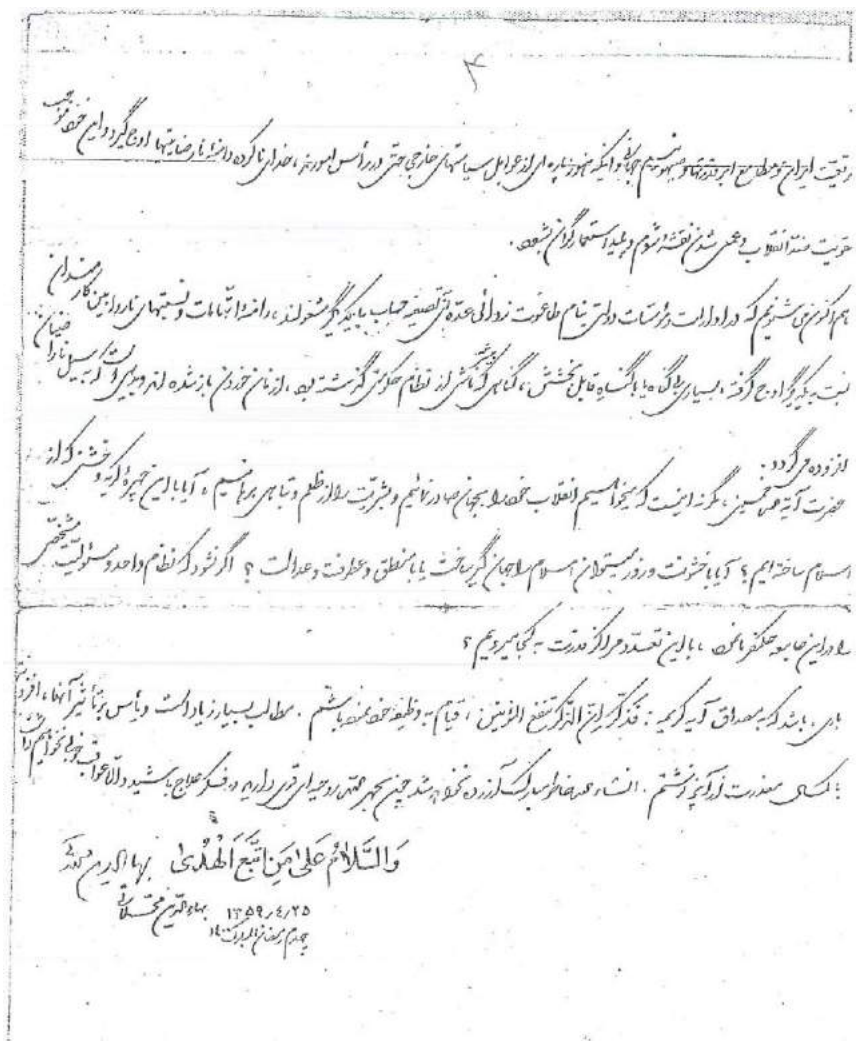 ۴
موقعیت ایران و مطامع ابرقدرتها و صهیونیسم جهانی و اینکه هنوز پاره ای از عوامل سیاستهای خارجی حتی در رأس امورند، خدای ناکرده دامنهٔ نارضایتیها اوج گیرد و این خود موجب
تقویت ضد انقلاب و عملی شدن نقشهٔ شوم و پلید استعمارگران بشود.
هم اکنون می شنویم که در ادارات و مؤسسات دولتی بنام طاغوت زدائی عده ای تصفیه حساب با یکدیگر مشغولند، دامنهٔ اتهامات و نسبتهای ناروا بین کارمندان
نسبت به یکدیگر اوج گرفته، بسیاری بیگناه یا با گناه قابل بخشش، گناهی که ناشی از نظام حکومتی گذشته بود، از نان خوردن باز شده اند و براین است که سیل ناراضیان
افزوده می گردد.
حضرت آیة الله خمینی، مگر نه اینست که میخواهیم انقلاب خود را بجهان صادر نمائیم و بشریت را از ظلم و تباهی برهانیم، آیا با این چهرهٔ کریه و خشنی که از
اسلام ساخته ایم؟ آیا با خشونت و زور میتوان اسلام را جهان گیر ساخت یا با منطق و عطوفت و عدالت؟ اگر نشود که نظام واحد و مسئولیت مشخصی
را در این جامعه حکمفرما نمود، با این تعدد مراکز قدرت به کجا میرویم؟
باری، باشد که به مصداق آیه کریمه: فَذَکِّر اِنَّ الذِّکری تنفع المؤمنین، قیام به وظیفه خود نموده باشم. مطالب بسیار زیاد است و یأس بر تأثیر آنها، افزون
با کمال معذرت از آنچه نوشتم. انشاءالله خاطر مبارک آزرده نخواهد شد چون بحمدالله روحیه ای قوی دارید در فکر علاج باشید والّا عواقب خوبی نخواهیم داشت
وَالسَّلامُ عَلی مَنِ اتَّبَعَ الْهُدی بهاءالدین محلاتی
۱۳۵۹/۴/۲۵ بهاءالدین محلاتی
چهارم رمضان المبارک